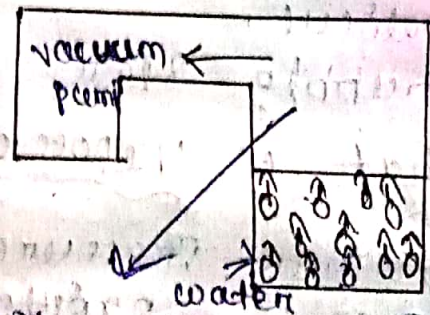 vacuum
pump
water